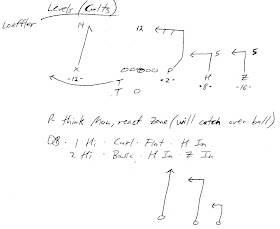 Levels (Colts)
Loeffler
14 12
5 5
X P H Z
-12- -2- -8- -16-
T
T O
P- think Man, react zone (will catch over ball)
QB- 1 Hi - Curl - Flat - H In
2 Hi - Basic - H In - Z In